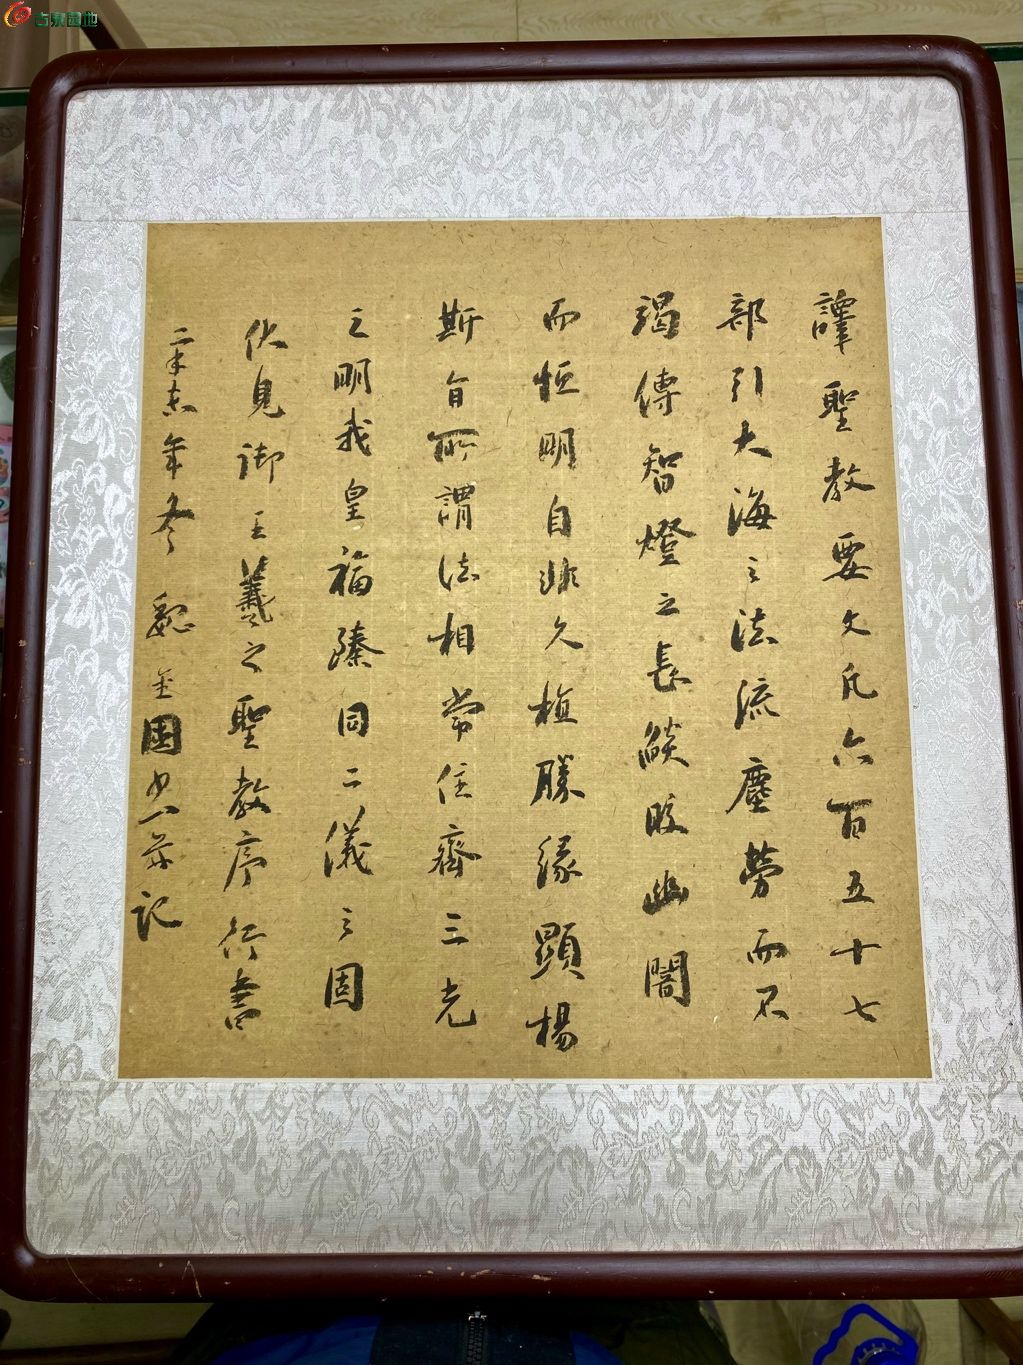 古泉园地
譯聖教要文凡六百五十七
部引大海之法流塵勞而不
竭傳智燈之長燄皎幽闇
而恒明自非久植勝緣顯揚
斯旨所謂法相常住齊三光
之明我皇福臻同二儀之固
伏見御 王羲之聖教序 行書
辛未年冬 記